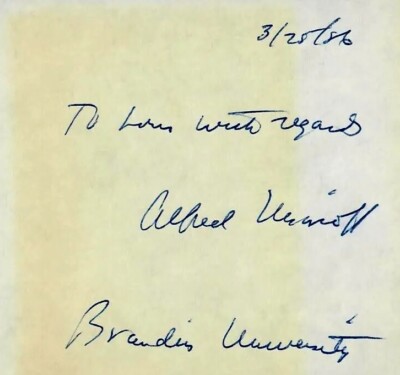 3/28/86
To Lou with regards
Alfred Nisonoff
Brandeis University